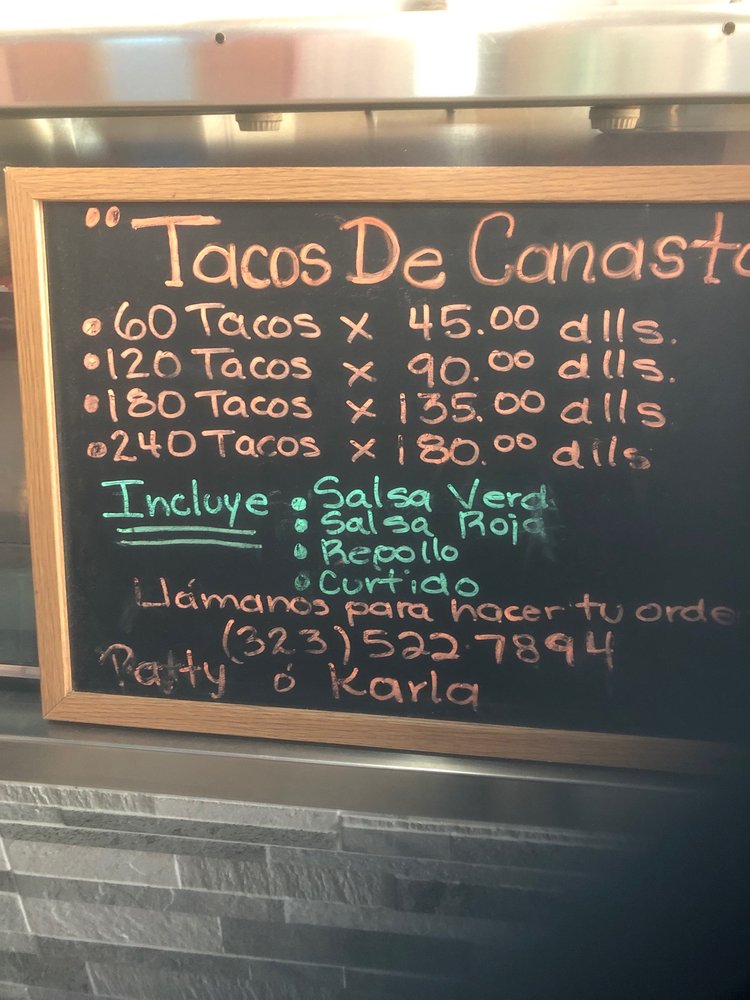 "Tacos De Canasta
• 60 Tacos x 45.00 dlls.
• 120 Tacos x 90.00 dlls.
• 180 Tacos x 135.00 dlls
• 240 Tacos x 180.00 dlls
Incluye • Salsa Verd
• Salsa Roja
• Repollo
• Curtido
Llámanos para hacer tu orde
(323) 522-7894
Patty ó Karla